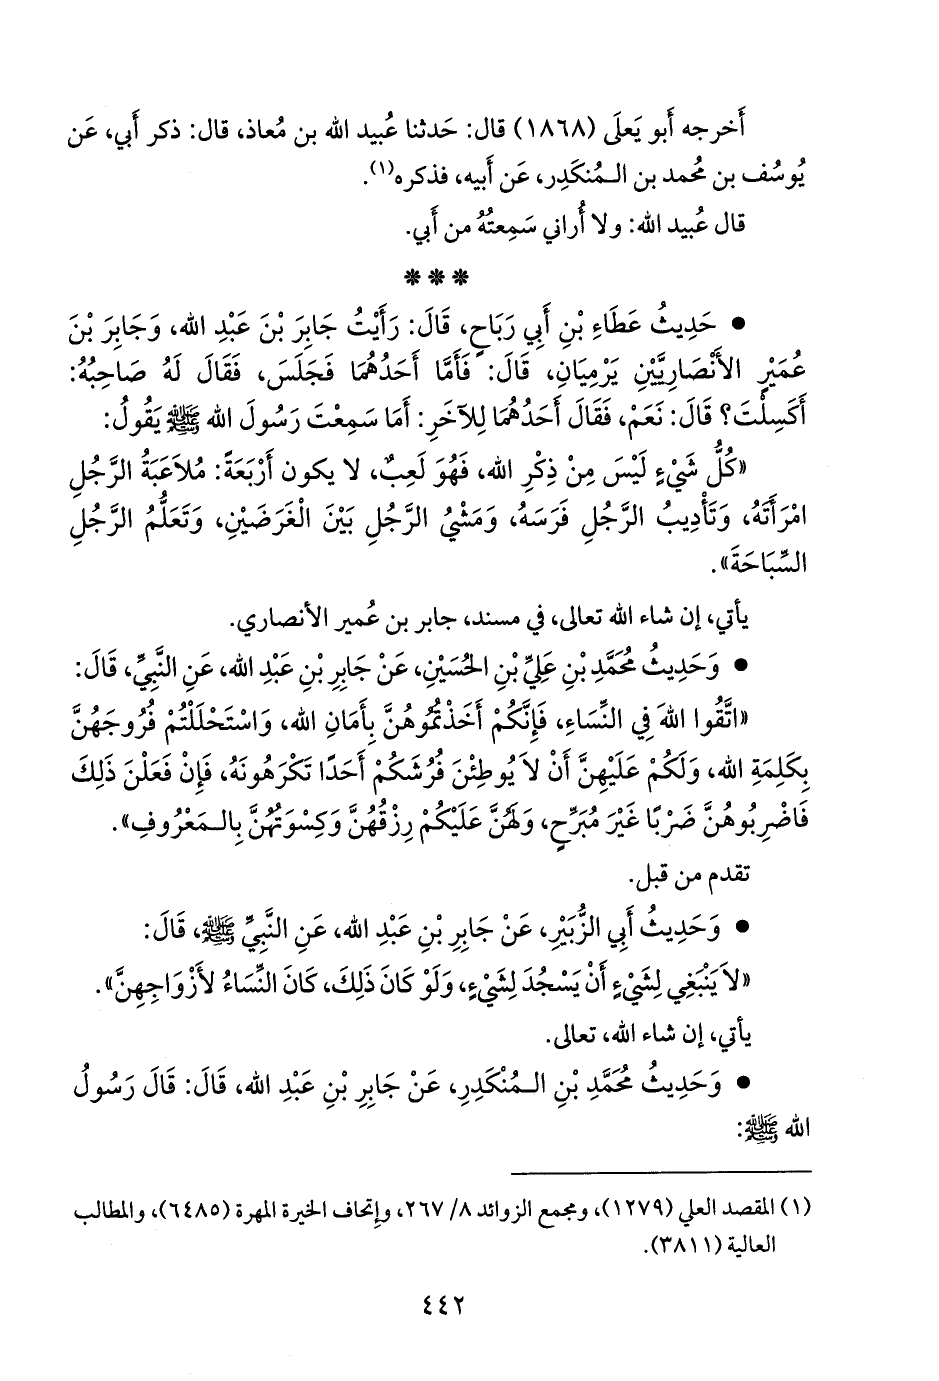 أَخرجه أَبو يَعلَى (١٨٦٨) قال: حَدثنا عُبيد الله بن مُعاذ، قال: ذكر أَبي، عَن
يُوسُف بن مُحمد بن الـمُنكَدِر، عَن أَبيه، فذكره(١).
قال عُبيد الله: ولا أُراني سَمِعتُهُ من أَبي.
* * *
• حَدِيثُ عَطَاءِ بْنِ أَبِي رَبَاحٍ، قَالَ: رَأَيْتُ جَابِرَ بْنَ عَبْدِ الله، وَجَابِرَ بْنَ
عُمَيْرٍ الأَنْصَارِيَّيْنِ يَرْمِيَانِ، قَالَ: فَأَمَّا أَحَدُهُمَا فَجَلَسَ، فَقَالَ لَهُ صَاحِبُهُ:
أَكَسِلْتَ؟ قَالَ: نَعَمْ، فَقَالَ أَحَدُهُمَا لِلآخَرِ: أَمَا سَمِعْتَ رَسُولَ الله ﷺ يَقُولُ:
«كُلُّ شَيْءٍ لَيْسَ مِنْ ذِكْرِ الله، فَهُوَ لَعِبٌ، لا يكون أَرْبَعَةً: مُلاَعَبَةُ الرَّجُلِ
امْرَأَتَهُ، وَتَأْدِيبُ الرَّجُلِ فَرَسَهُ، وَمَشْيُ الرَّجُلِ بَيْنَ الْغَرَضَيْنِ، وَتَعَلُّمُ الرَّجُلِ
السِّبَاحَةَ».
يأتي، إن شاء الله تعالى، في مسند، جابر بن عُمير الأنصاري.
• وَحَدِيثُ مُحَمَّدِ بْنِ عَلِيِّ بْنِ الحُسَيْنِ، عَنْ جَابِرِ بْنِ عَبْدِ الله، عَنِ النَّبِيِّ، قَالَ:
«اتَّقُوا اللهَ فِي النِّسَاءِ، فَإِنَّكُمْ أَخَذْتُمُوهُنَّ بِأَمَانِ الله، وَاسْتَحْلَلْتُمْ فُرُوجَهُنَّ
بِكَلِمَةِ الله، وَلَكُمْ عَلَيْهِنَّ أَنْ لاَ يُوطِئْنَ فُرُشَكُمْ أَحَدًا تَكْرَهُونَهُ، فَإِنْ فَعَلْنَ ذَلِكَ
فَاضْرِبُوهُنَّ ضَرْبًا غَيْرَ مُبَرِّحٍ، وَلَهُنَّ عَلَيْكُمْ رِزْقُهُنَّ وَكِسْوَتُهُنَّ بِالـمَعْرُوفِ».
تقدم من قبل.
• وَحَدِيثُ أَبِي الزُّبَيْرِ، عَنْ جَابِرِ بْنِ عَبْدِ الله، عَنِ النَّبِيِّ ﷺ، قَالَ:
«لاَ يَنْبَغِي لِشَيْءٍ أَنْ يَسْجُدَ لِشَيْءٍ، وَلَوْ كَانَ ذَلِكَ، كَانَ النِّسَاءُ لأَزْوَاجِهِنَّ».
يأتي، إن شاء الله، تعالى.
• وَحَدِيثُ مُحَمَّدِ بْنِ الـمُنْكَدِرِ، عَنْ جَابِرِ بْنِ عَبْدِ الله، قَالَ: قَالَ رَسُولُ
الله ﷺ:
(١) المقصد العلي (١٢٧٩)، ومجمع الزوائد ٨/ ٢٦٧، وإتحاف الخيرة المهرة (٦٤٨٥)، والمطالب
العالية (٣٨١١).
٤٤٢